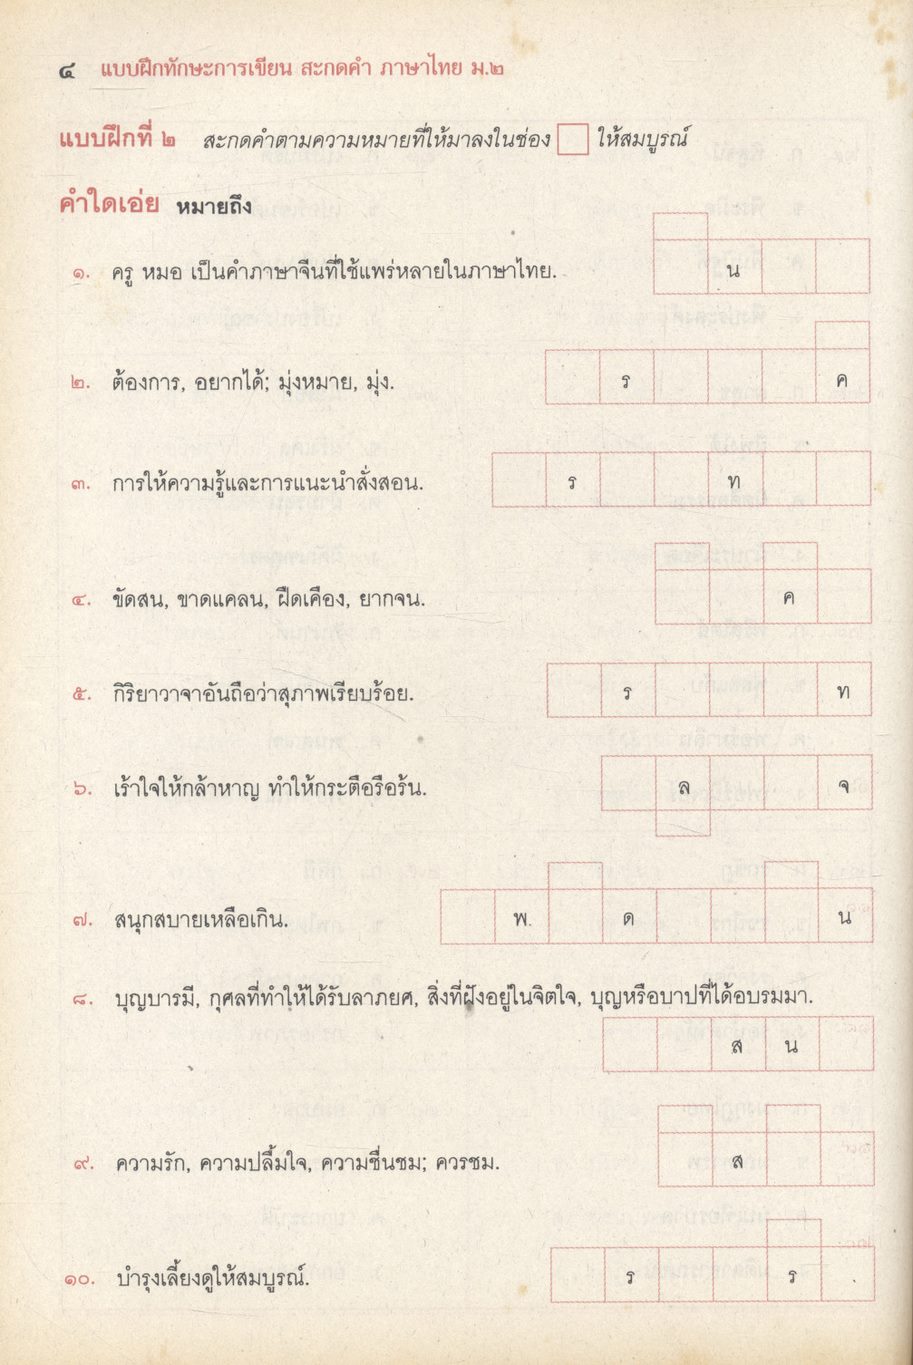 ๔ แบบฝึกทักษะการเขียน สะกดคำ ภาษาไทย ม.๒
แบบฝึกที่ ๒ สะกดคำตามความหมายที่ให้มาลงในช่อง ให้สมบูรณ์
คำใดเอ่ย หมายถึง
๑. ครู หมอ เป็นคำภาษาจีนที่ใช้แพร่หลายในภาษาไทย. น
๒. ต้องการ, อยากได้; มุ่งหมาย, มุ่ง. ร ค
๓. การให้ความรู้และการแนะนำสั่งสอน. ร ท
๔. ขัดสน, ขาดแคลน, ฝืดเคือง, ยากจน. ค
๕. กิริยาวาจาอันถือว่าสุภาพเรียบร้อย. ร ท
๖. เร้าใจให้กล้าหาญ ทำให้กระตือรือร้น. ล จ
๗. สนุกสบายเหลือเกิน. พ ด น
๘. บุญบารมี, กุศลที่ทำให้ได้รับลาภยศ, สิ่งที่ฝังอยู่ในจิตใจ, บุญหรือบาปที่ได้อบรมมา.
ส น
๙. ความรัก, ความปลื้มใจ, ความชื่นชม; ควรชม. ส
๑๐. บำรุงเลี้ยงดูให้สมบูรณ์. ร ร